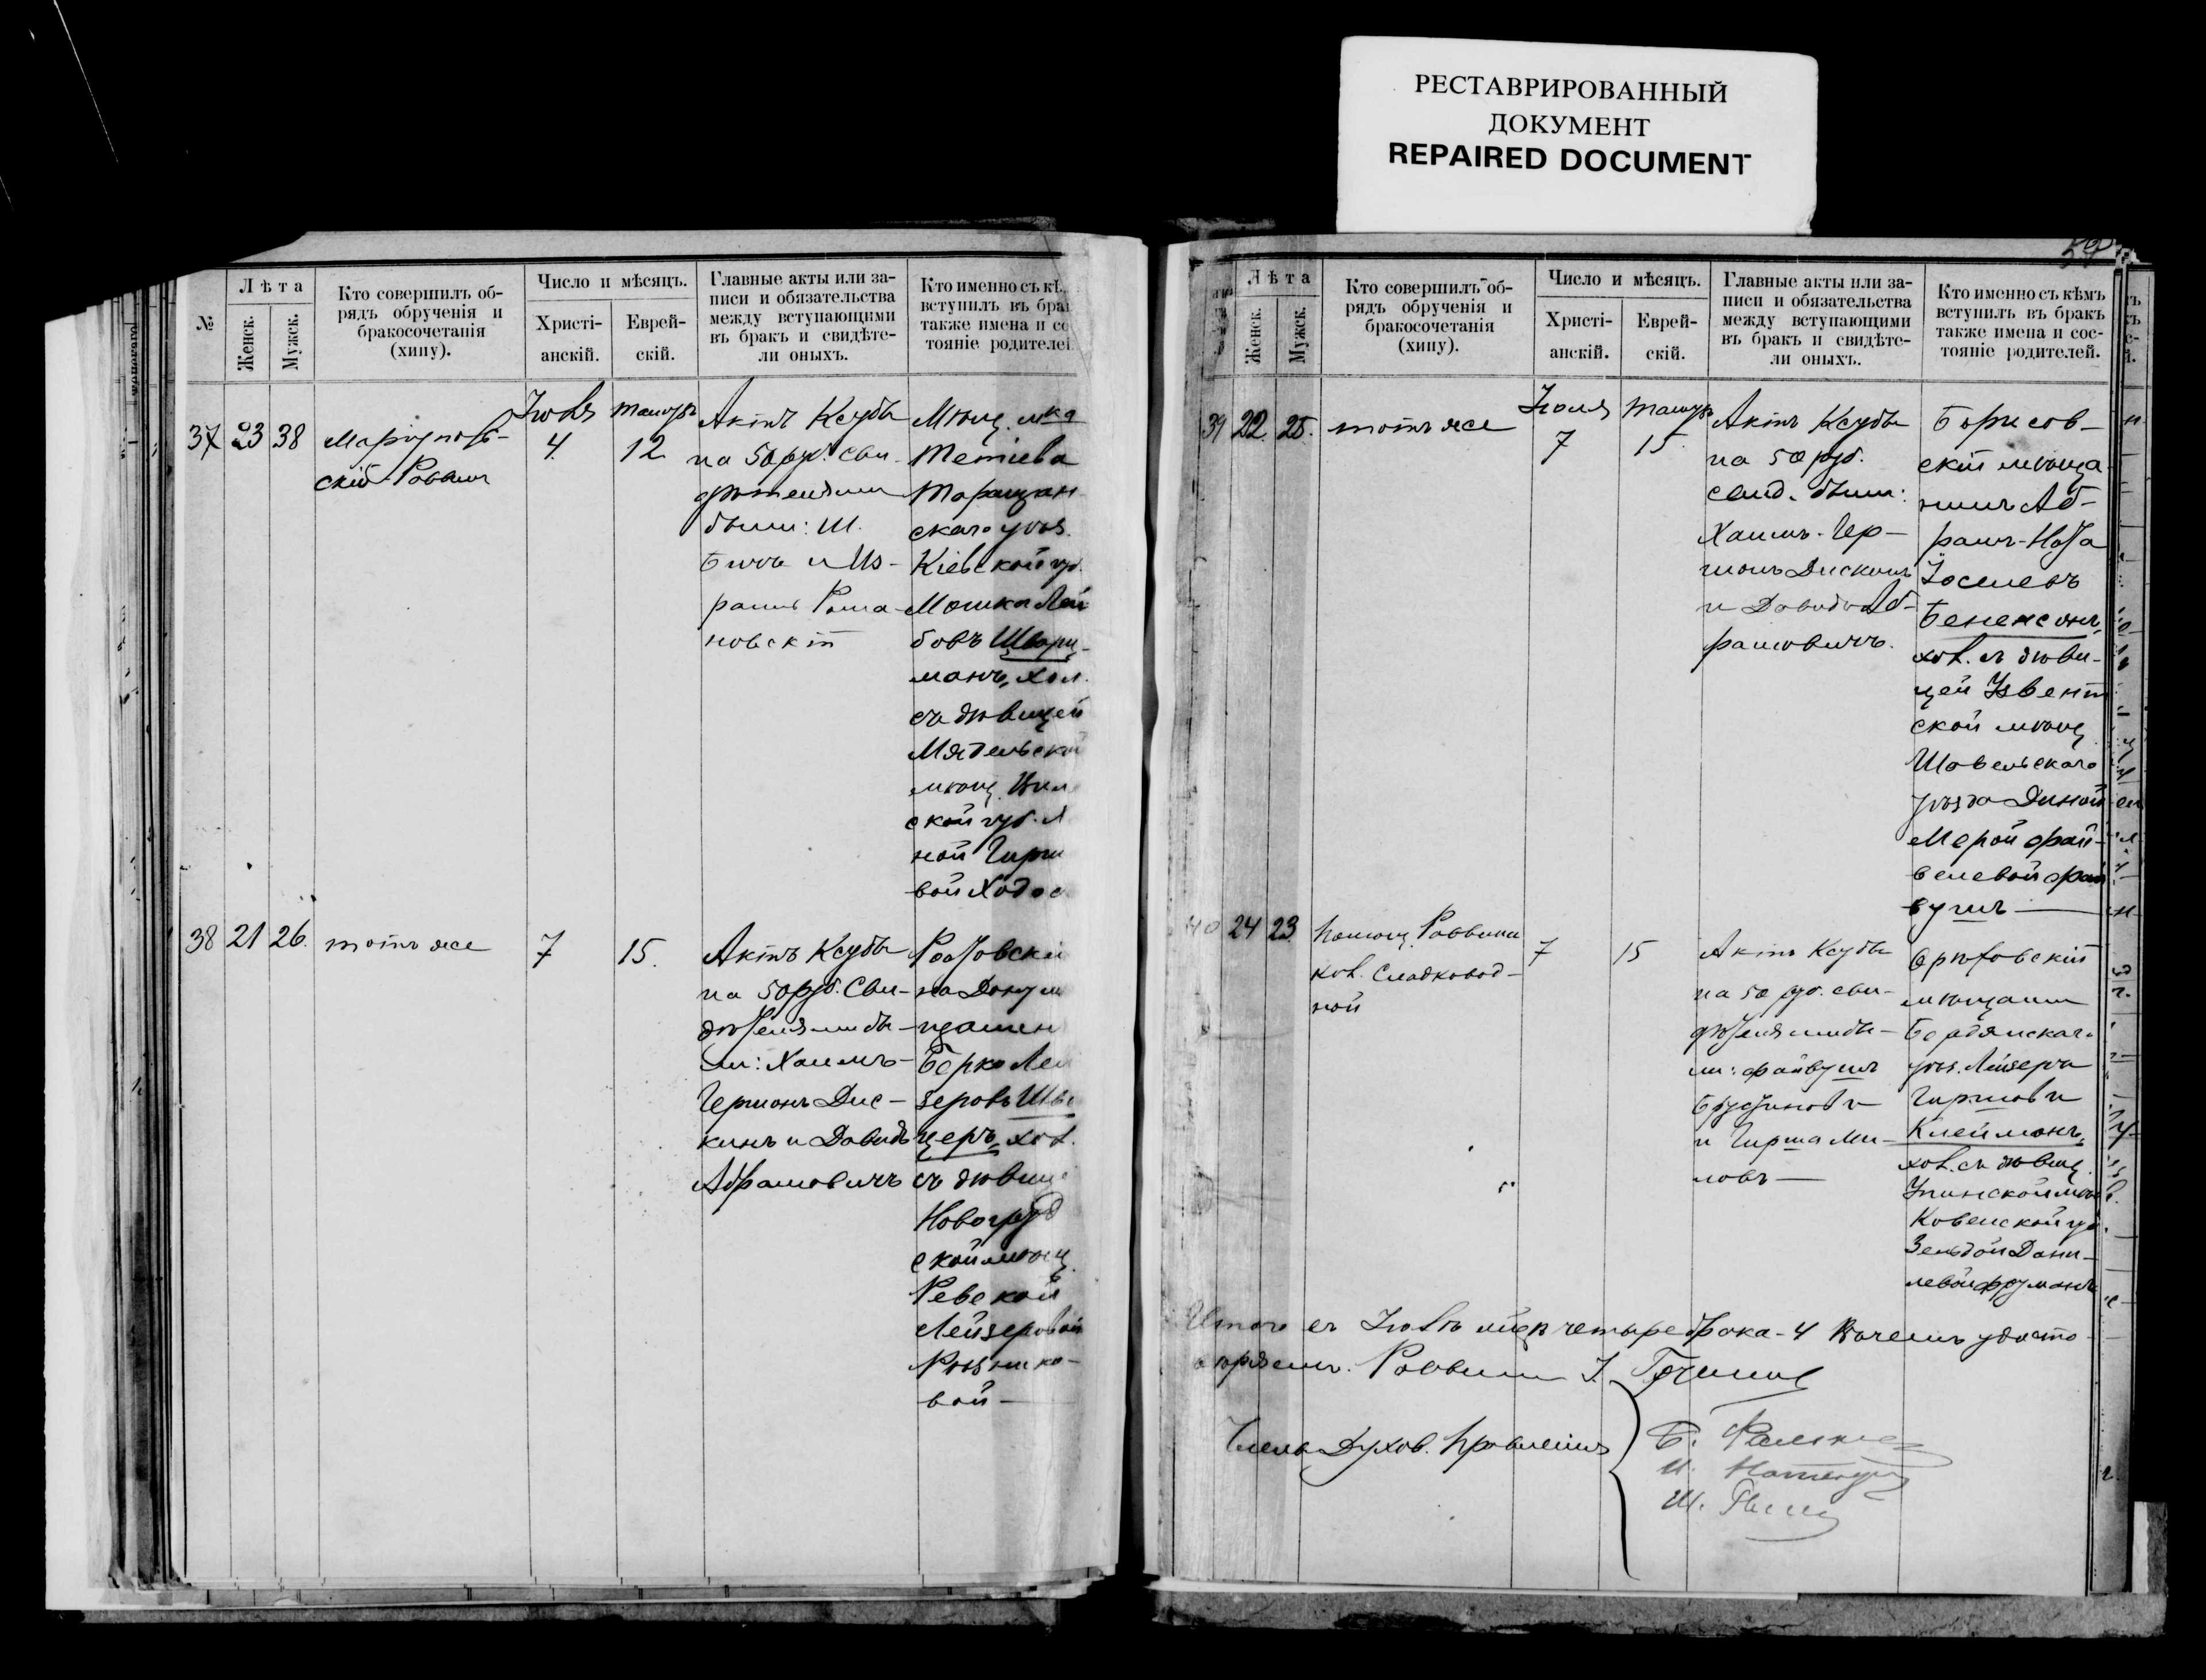 РЕСТАВРИРОВАННЫЙ
ДОКУМЕНТ
REPAIRED DOCUMENT
№
Лѣта
Женск.
Мужск.
Кто совершилъ об-
рядъ обрученія и
бракосочетанія
(хипу).
Число и мѣсяцъ.
Христі-
анскій.
Еврей-
скій.
Главные акты или за-
писи и обязательства
между вступающими
въ бракъ и свидѣте-
ли оныхъ.
Кто именно съ кѣ
вступилъ въ бра
также имена и со
тояніе родителе
37 23 38
Маріуполь-
скій Раввинъ
Іюля
4
Тамузъ
12
Актъ Ксубы
на 50 руб. Сви-
дѣтелями
были: Ш.
и Из-
раиль Рома-
новскій
Мѣщ. м-ка
Тетіева
Таращан-
скаго уѣз.
Кіевской гу.
Мошка Лей
бовъ Шварц-
манъ, хол.
съ дѣвицей
Мядельской
мѣщ. Вил
ской губ.
ной Гирш
вой Ходос
38 21 26.
тотъ же
7
15.
Актъ Ксубы
на 50 руб. Сви-
дѣтелями бы-
ли: Хаимъ-
Герцонъ Дис-
кинъ и Давидъ
Абрамовичъ
Ростовскі
на Дону м
щанин
Берко Лей
зеровъ Шве
церъ, хол.
съ дѣвице
Новогруд
ской мѣщ.
Ревекой
Лейзеровой
Рѣзнико-
вой
59
Лѣта
Женск.
Мужск.
Кто совершилъ об-
рядъ обрученія и
бракосочетанія
(хипу).
Число и мѣсяцъ.
Христі-
анскій.
Еврей-
скій.
Главные акты или за-
писи и обязательства
между вступающими
въ бракъ и свидѣте-
ли оныхъ.
Кто именно съ кѣмъ
вступилъ въ бракъ
также имена и сос-
тояніе родителей.
39 22 25.
тотъ же
Іюля
7
Тамузъ
15
Актъ Ксубы
на 50 руб.
Свид. были:
Хаимъ-Гер-
цонъ Дискинъ
и Давидъ Аб-
рамовичъ.
Борисов-
скій мѣща
нинъ Аб-
рамъ-Нота
Іоселевъ
Бененсонъ,
хол. съ дѣви-
цей Увент
ской мѣщ.
Шавельскаго
уѣзда Диной
Мерой Фай-
велевой Фай
вушъ
40 24 23
Помощ. Раввина
кол. Сладковод-
ной
7
15
Актъ Ксубы
на 50 руб. сви-
дѣтелями бы-
ли: Файвушъ
и Гирша Ми-
ловъ
Орѣховскій
мѣщанин
Бердянскаго
уѣз. Лейзеръ
Гиршовъ
Клейманъ,
хол. съ дѣвиц.
мѣщ
Ковенской гу.
Зельдой Дани-
левой Фруманъ
Итого въ Іюлѣ м-цѣ четыре брака - 4 въ чемъ удосто-
вѣряемъ. Раввинъ І.
Члены Духов. Правленія